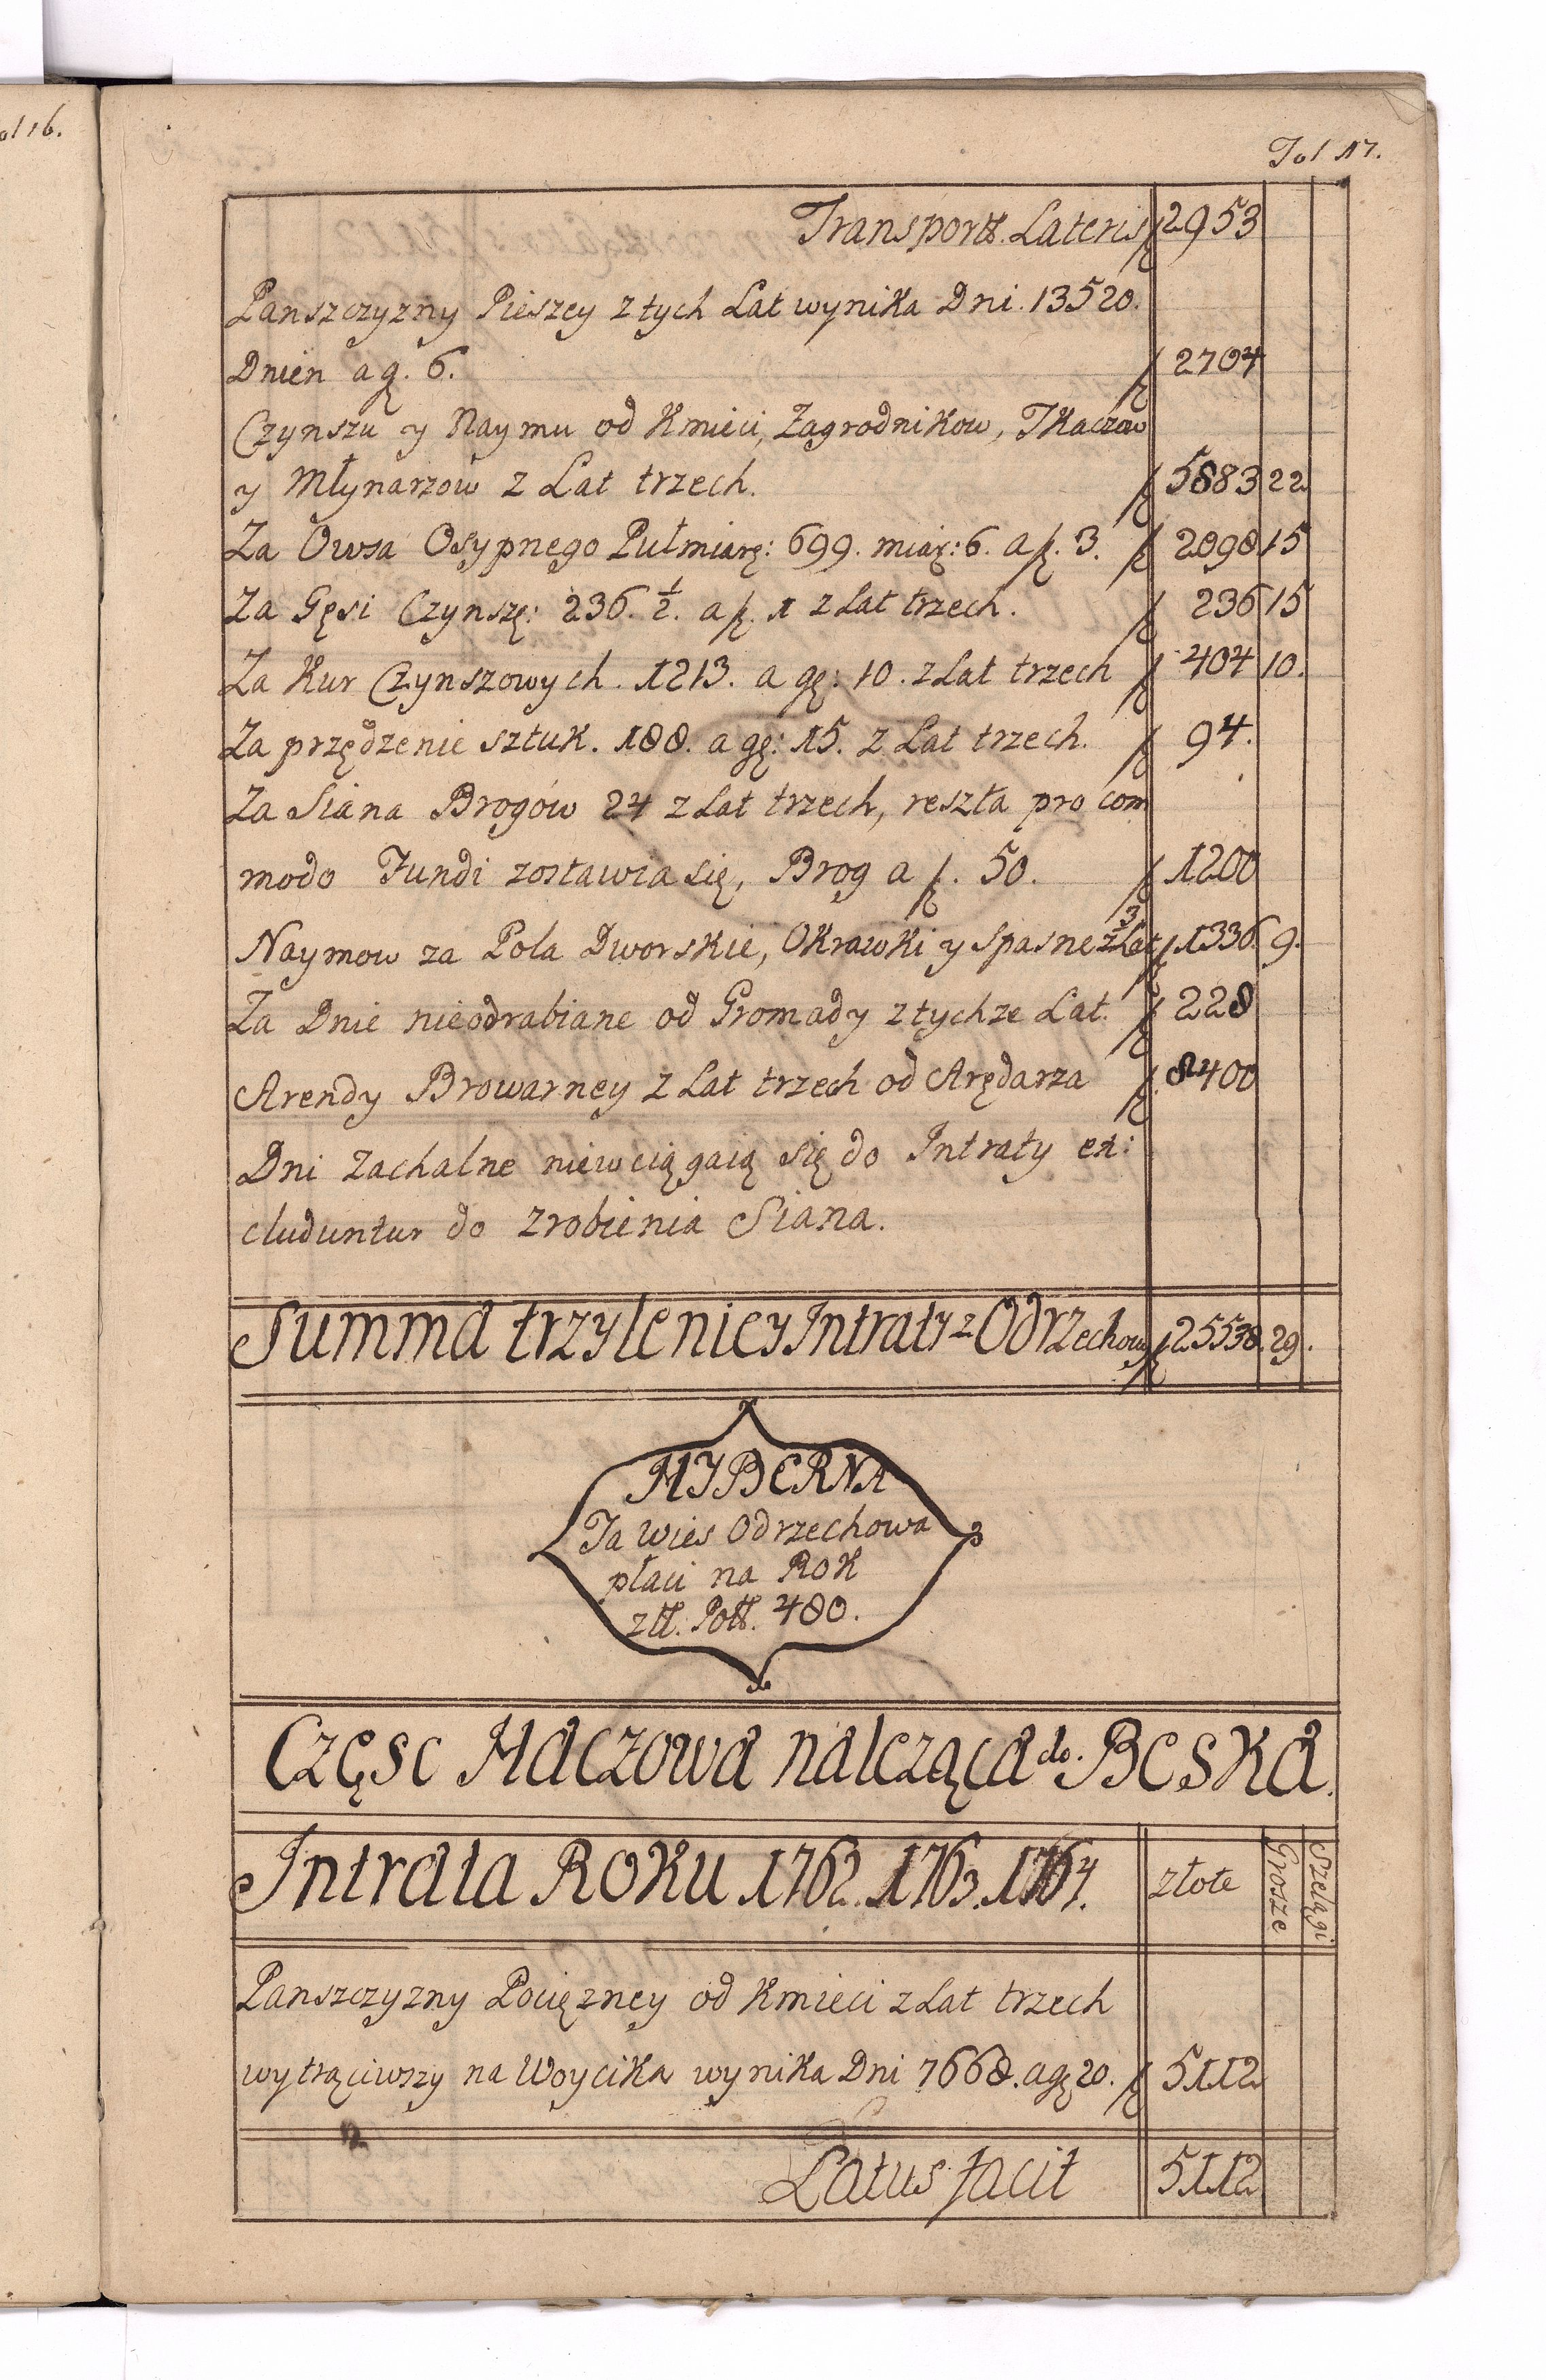 ol 16.
Fol 17.
Transportt. Lateris ƶ 2953
Panszczyzny Pieszey z tych Lat wynika Dni. 13520.
Dnien a g. 6. ƶ 2704
Czynszu y Naymu od Kmieci, Zagrodnikow, Tkaczow
y Młynarzow z Lat trzech. ƶ 5883 22
Za Owsa Osypnego Pułmiarę: 699. miar: 6. a ƶ. 3. ƶ 2098 15
Za Gęsi Czynszę: 236. ½. a ƶ. 1 z Lat trzech. ƶ 236 15
Za Kur Czynszowych. 1213. a gę: 10. z Lat trzech ƶ 404 10.
Za przędzenie sztuk. 188. a gę: 15. z Lat trzech. ƶ 94.
Za Siana Brogów 24 z Lat trzech, reszta pro com
modo Fundi zostawia się, Brog a ƶ. 50. ƶ 1200
Naymow za Pola Dworskie, Okrawki y Spasne z 3 Lat ƶ 1336. 9.
Za Dnie nieodrabiane od Gromady z tychze Lat. ƶ 228
Arendy Browarney z Lat trzech od Arędarza ƶ 8400
Dni Zachalne niewciągaią się do Intraty ex:
cluduntur do zrobienia Siana.
Summa trzyletniey Intraty z Odrzechowy ƶ 25538. 29.
HYBERNA
Ta Wies Odrzechowa
płaci na Rok
złł. Poll. 480.
Częsc Haczowa nalcząca do. Beska.
Intrata Roku 1762. 1763. 1764. złote Grosze Szelągi
Panszczyzny Pociężney od Kmieci z Lat trzech
wytrąciwszy na Woycika wynika Dni 7668. a gę 20. ƶ 5112
Latus facit 5112